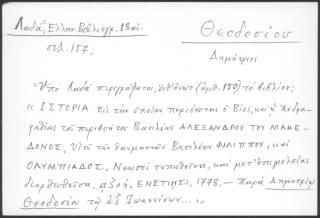 Λαδᾶ, Ἑλλην. Βιβλιογρ. 18 αἰ.
σελ. 157.
Θεοδοσίου
Δημήτριος
Ὑπὸ Λαδᾶ περιγράφεται, ἐνθ' ἀνωτ. (ἀριθ. 150) τὸ βιβλίον:
«ΙΣΤΟΡΙΑ εἰς τὴν ὁποίαν περιέχεται ὁ Βίος, καὶ ἡ Ἀνδρα-
γαθίαις τοῦ περιβοήτου Βασιλέως ΑΛΕΞΑΝΔΡΟΥ ΤΟΥ ΜΑΚΕ-
ΔΟΝΟΣ, Υἱοῦ τῶν θαυμασῶν Βασιλέων ΦΙΛΙΠΠΟΥ, καὶ
ΟΛΥΜΠΙΑΔΟΣ. Νεωστὶ τυπωθεῖσα, καὶ μετ' ἐπιμελείας
διορθωθεῖσα. αψοη. ΕΝΕΤΙΗΣΙ, 1778. — Παρὰ Δημητρίῳ
Θεοδοσίου τῷ ἐξ Ἰωαννίνων...»